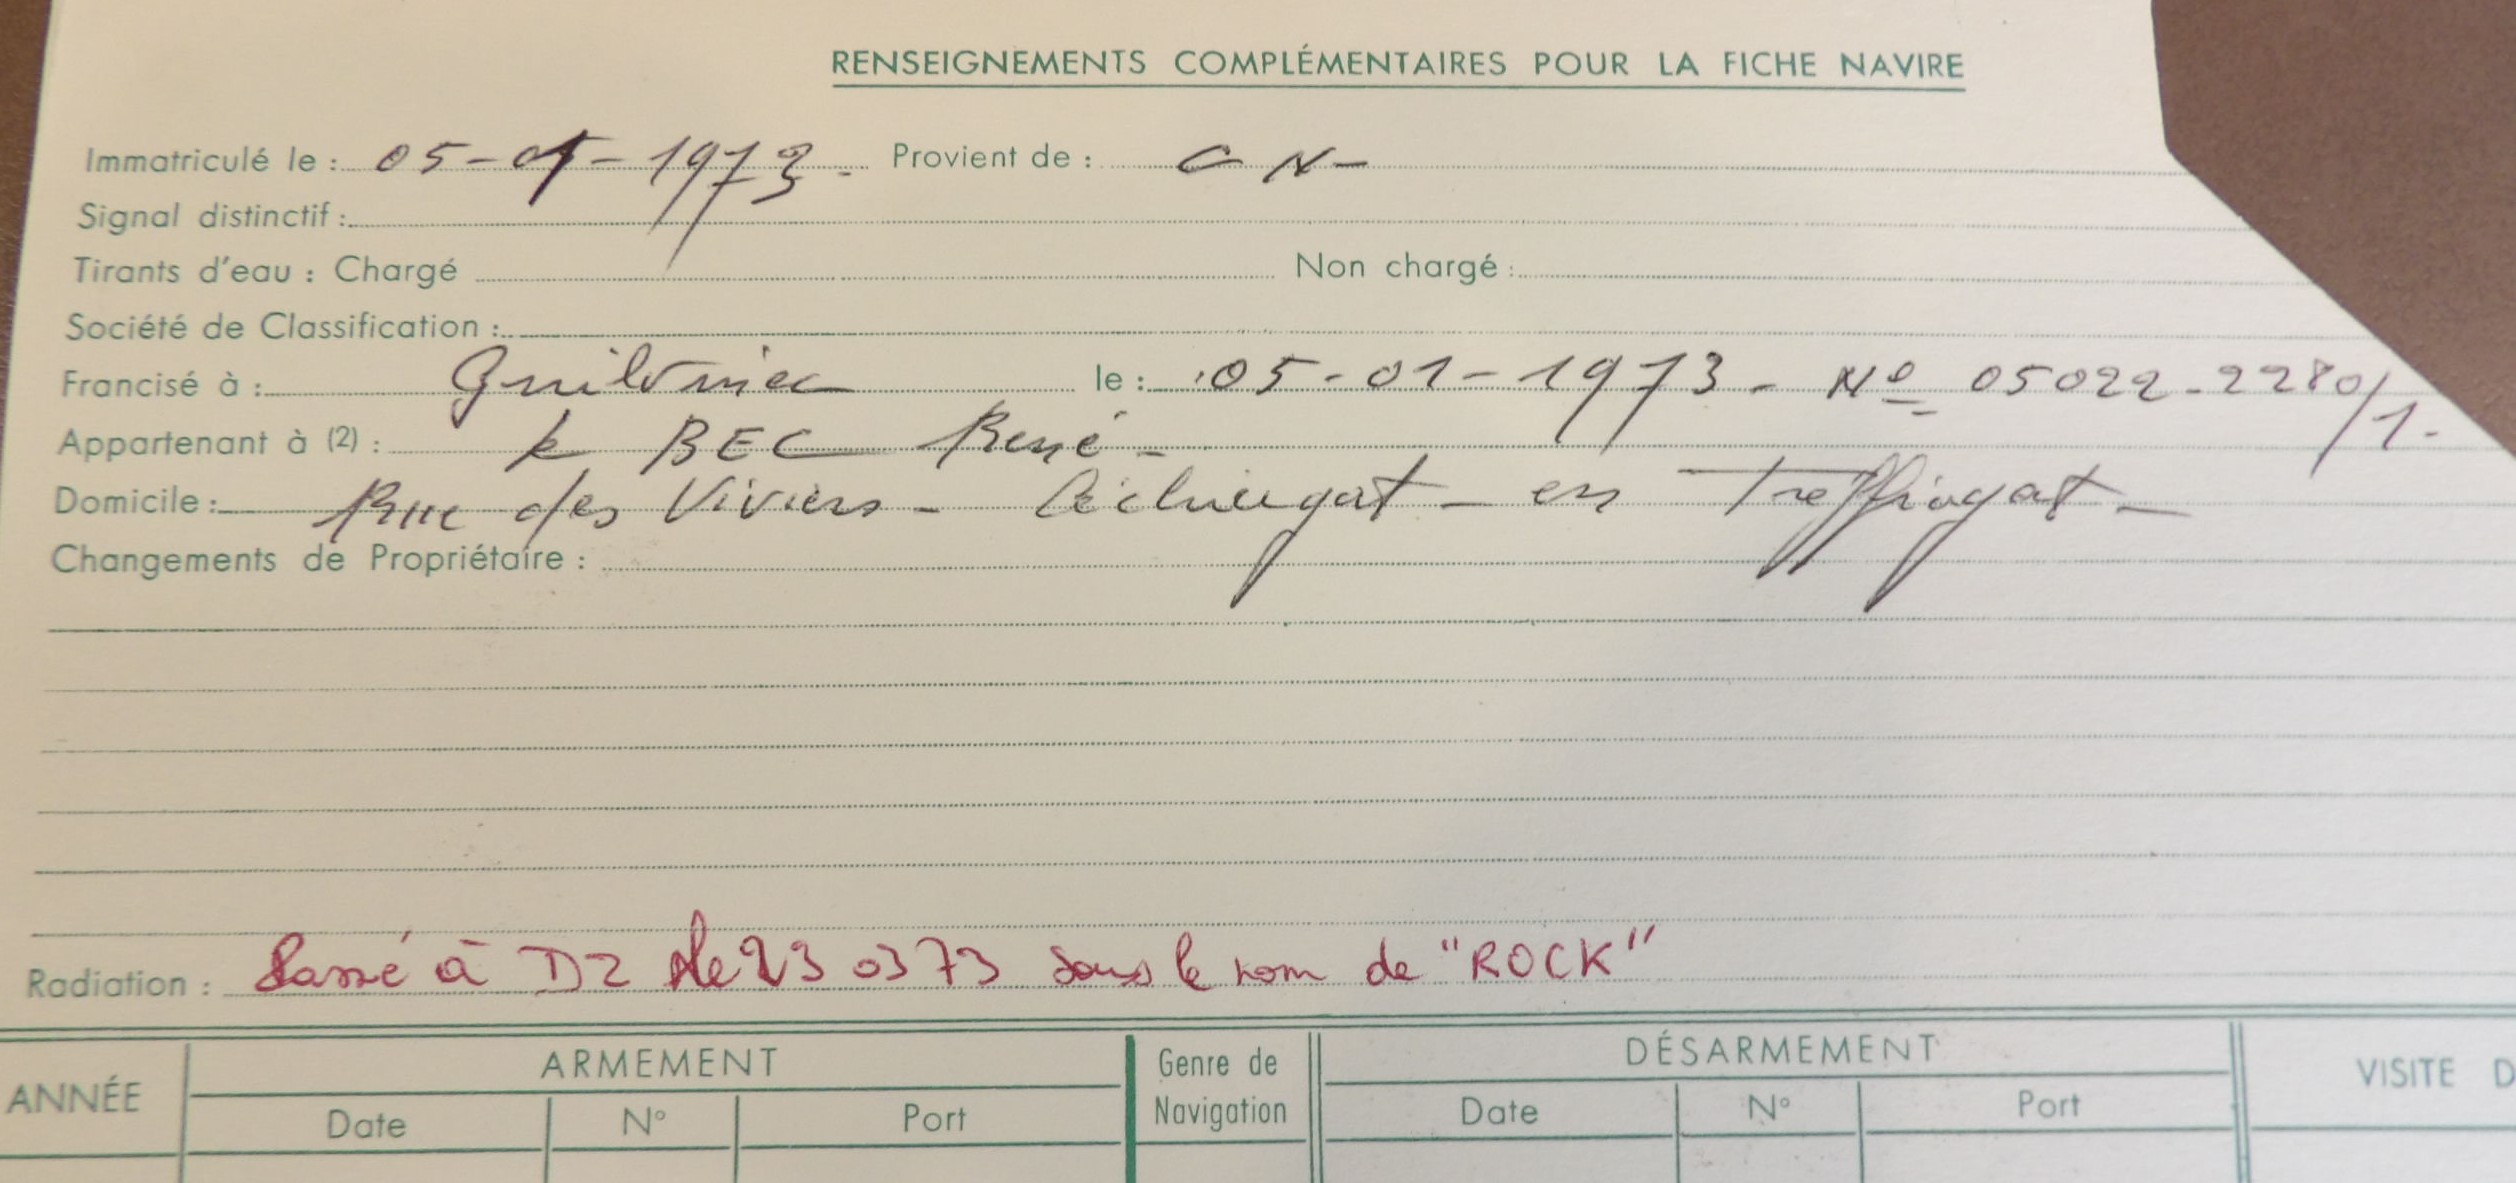 RENSEIGNEMENTS COMPLÉMENTAIRES POUR LA FICHE NAVIRE
Immatriculé le : 05-01-1973. Provient de : CN-
Signal distinctif :
Tirants d'eau : Chargé Non chargé :
Société de Classification :
Francisé à : Guilvinec le : 05-01-1973 - Nº 05022-2280/1.
Appartenant à (2) : le BEC René -
Domicile : Rue des Viviers - Léchiagat - en Treffiagat -
Changements de Propriétaire :
Radiation : Passé à DZ le 23 03 73 sous le nom de "ROCK"
ANNÉE ARMEMENT Genre de Navigation DÉSARMEMENT VISITE D
Date N° Port Date N° Port